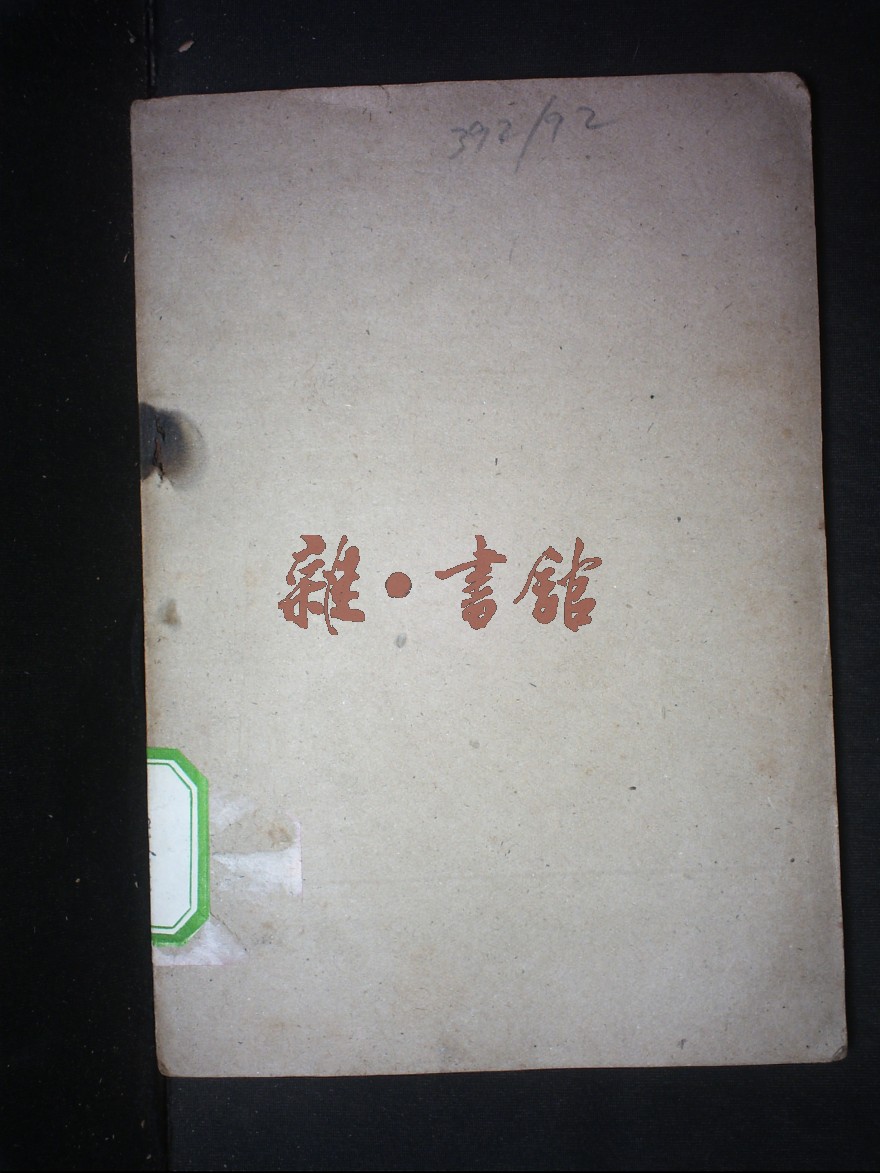 392/92
雜·書館